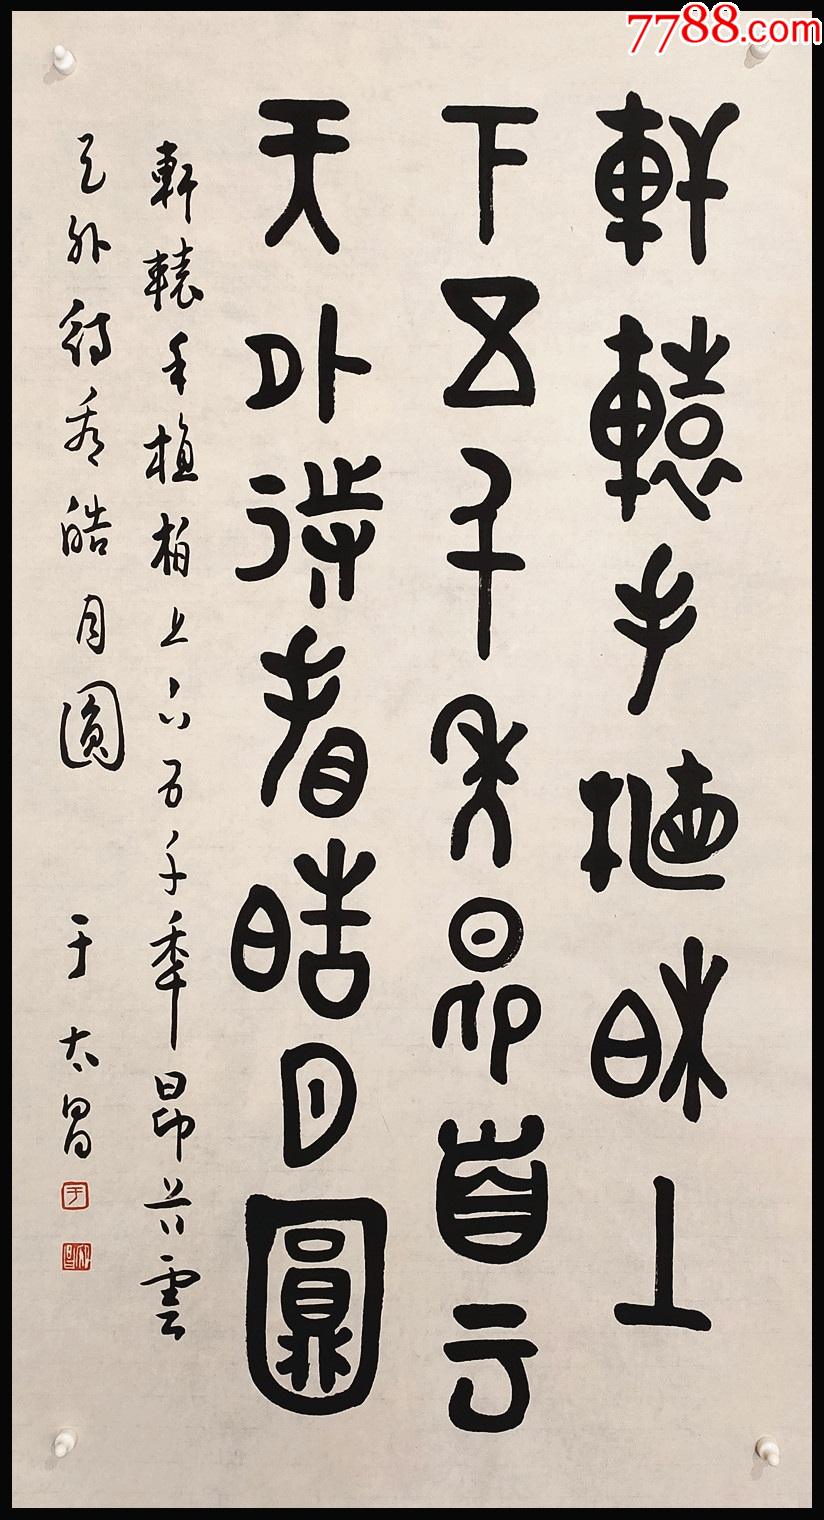 軒轅手植柏上
下五千年昂首云
天外待看皓月圓
軒轅手植柏上下五千年昂首雲
天外待看皓月圓 于太昌
于
7788.com